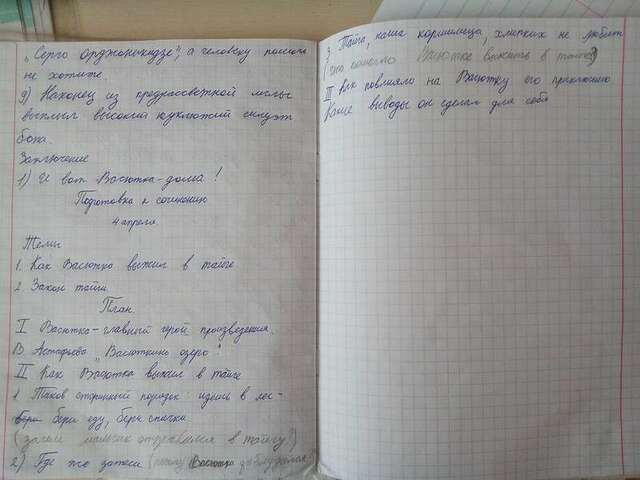 „Серго Орджоникидзе", а человеку помочь
не хотите.
9) Наконец из предрассветной мглы
выплыл высокий неуклюжий силуэт
бота.
Заключение
1) И вот Васютка-дома!
Подготовка к сочинению
4 апреля
Темы
1. Как Васютка выжил в тайге
2. Закон тайги.
План.
I Васютка-главный герой произведения.
В. Астафьева „Васюткино озеро".
II Как Васютка выжил в тайге
1. Таков старинный порядок: идешь в лес-
бери еду, бери спички
(зачем мальчик отправился в тайгу?)
2) Где же затеси (почему Васютка заблудился)
3. Тайга, наша кормилица, хлипких не любит
(что помогло Васютке выжить в тайге?)
III Как повлияло на Васютку его приключение
Какие выводы он сделал для себя